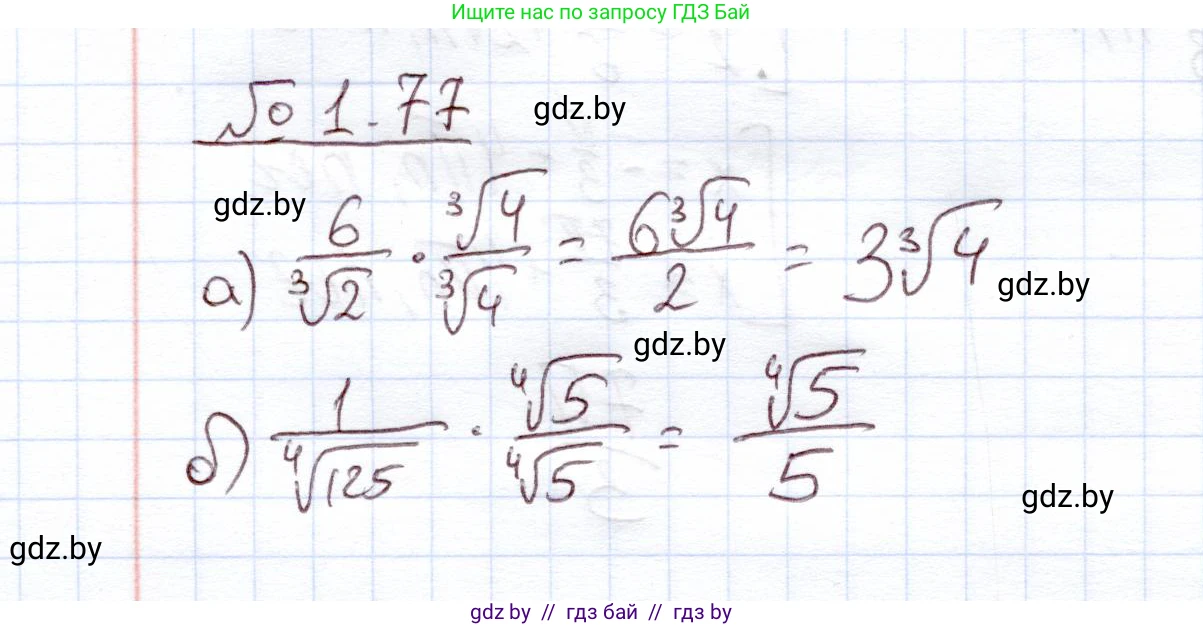 Ищите нас по запросу ГДЗ Бай
№ 1.77
gdz.by
gdz.by
а) 6/∛2 · ∛4/∛4 = 6∛4/2 = 3∛4
gdz.by
gdz.by
б) 1/∜125 · ∜5/∜5 = ∜5/5
gdz.by
gdz.by
gdz.by // гдз бай // гдз by